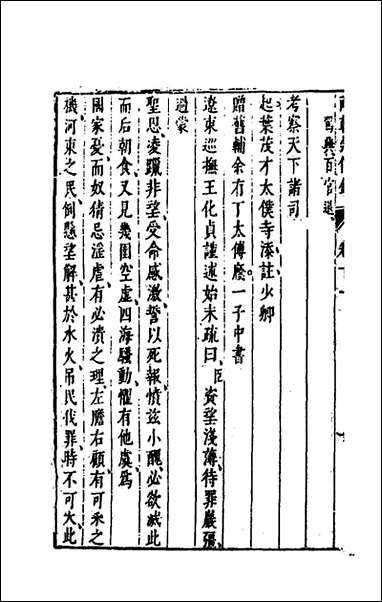 考察天下諸司
起葉茂才太僕寺添註少卿
贈舊輔余有丁太傅廕一子中書
遼東巡撫王化貞謹述始末疏曰臣資望淺薄待罪嚴疆
過蒙
聖恩凌躐非望受命感激誓以死報憤玆小醜必欲滅此
而后朝食又見幾囤空虛四海騷動懼有他虞爲
國家憂而奴猜忌淫虐有必潰之理左瞻右顧有可乘之
機河東之民倒懸望解甚於水火吊民伐罪時不可失此